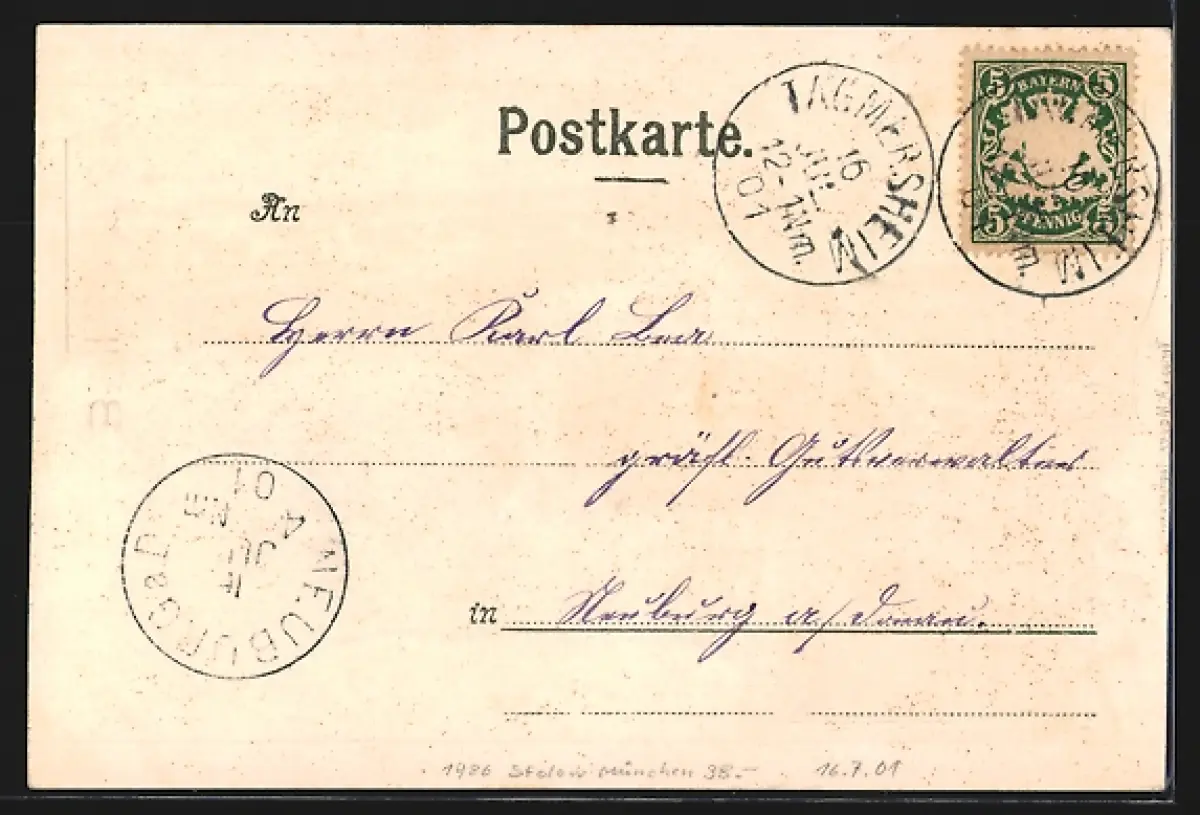 Postkarte.
TAGMERSHEIM
16
JUL
12-1Nm.
01
5 BAYERN 5
5 PFENNIG 5
An
Herrn Karl
gräfl. Gutsverwalter
in Neuburg a/ Donau.
NEUBURG a D.
JUL
Nm
01
1986 München 38.- 16.7.01